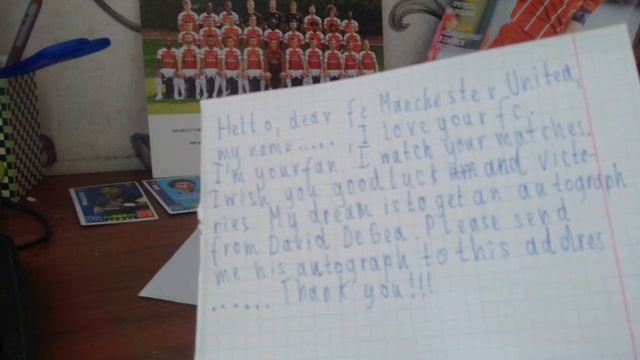 Hello, dear fc Manchester United,
my name..... I love your fc.
I'm your fan! I watch your matches.
I wish you good luck and victo-
ries. My dream is to get an autograph
from David De Gea. Please send
me his autograph to this addres
...... Thank you!!!